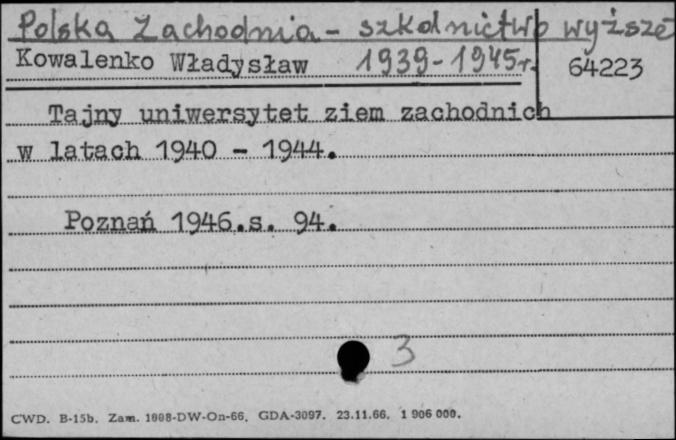 Polska Zachodnia - szkolnictwo wyższe
Kowalenko Władysław 1939-1945r. 64223
Tajny uniwersytet ziem zachodnich
w latach 1940 - 1944.
Poznań 1946.s. 94.
3
CWD. B-15b. Zam. 1008-DW-On-66. GDA-3097. 23.11.66. 1 906 000.